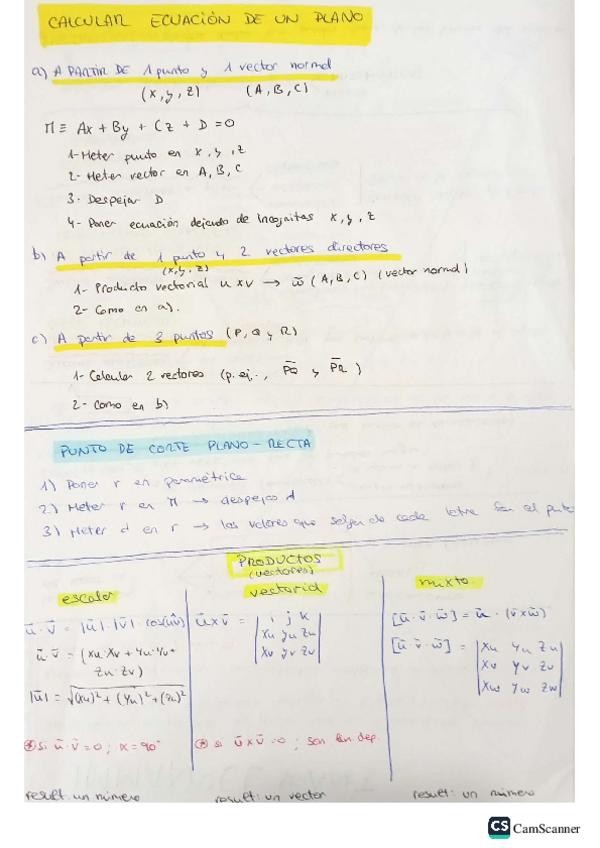 CALCULAR ECUACIÓN DE UN PLANO
a) A PARTIR DE 1 punto y 1 vector normal
(x, y, z) (A, B, C)
Π ≡ Ax + By + Cz + D = 0
1- Meter punto en x, y, z
2- Meter vector en A, B, C
3- Despejar D
4- Poner ecuación dejando de incognitas x, y, z
b) A partir de 1 punto y 2 vectores directores
(x, y, z)
1- Producto vectorial u x v → w̄ (A, B, C) (vector normal)
2- Como en a).
c) A partir de 3 puntos (P, Q y R)
1- Calcular 2 vectores (p. ej., P̄Q̄ y P̄R̄)
2- Como en b)
PUNTO DE CORTE PLANO - RECTA
1) Poner r en paramétrica
2) Meter r en Π → despejas d
3) Meter d en r → los valores que salgan de cada letra son el punto
PRODUCTOS
(vectores)
escalar
ū · v̄ = |ū| · |v̄| · cos(ûv)
ū · v̄ = (xu · xv + yu · yv +
zu · zv)
|ū| = √(xu)² + (yu)² + (zu)²
* si ū · v̄ = 0 ; α = 90°
result: un número
vectorial
ū x v̄ = | i j k
xu yu zu
xv yv zv |
* si ū x v̄ = 0 ; son lin. dep.
result: un vector
mixto
[ū · v̄ · w̄] = ū · (v̄ x w̄)
[ū · v̄ · w̄] = | xu yu zu
xv yv zv
xw yw zw |
result: un número
CS CamScanner